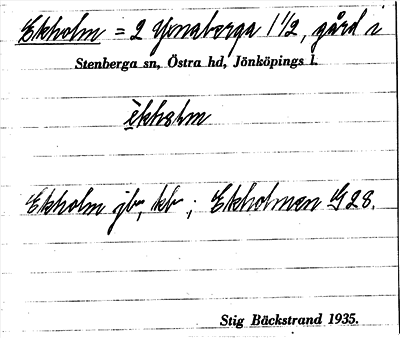 Ekholm = 2 Ynaberga 1 1/2, gård i
Stenberga sn, Östra hd, Jönköpings l.
èkholm
Ekholm jb, kb; Ekholmen G 28.
Stig Bäckstrand 1935.